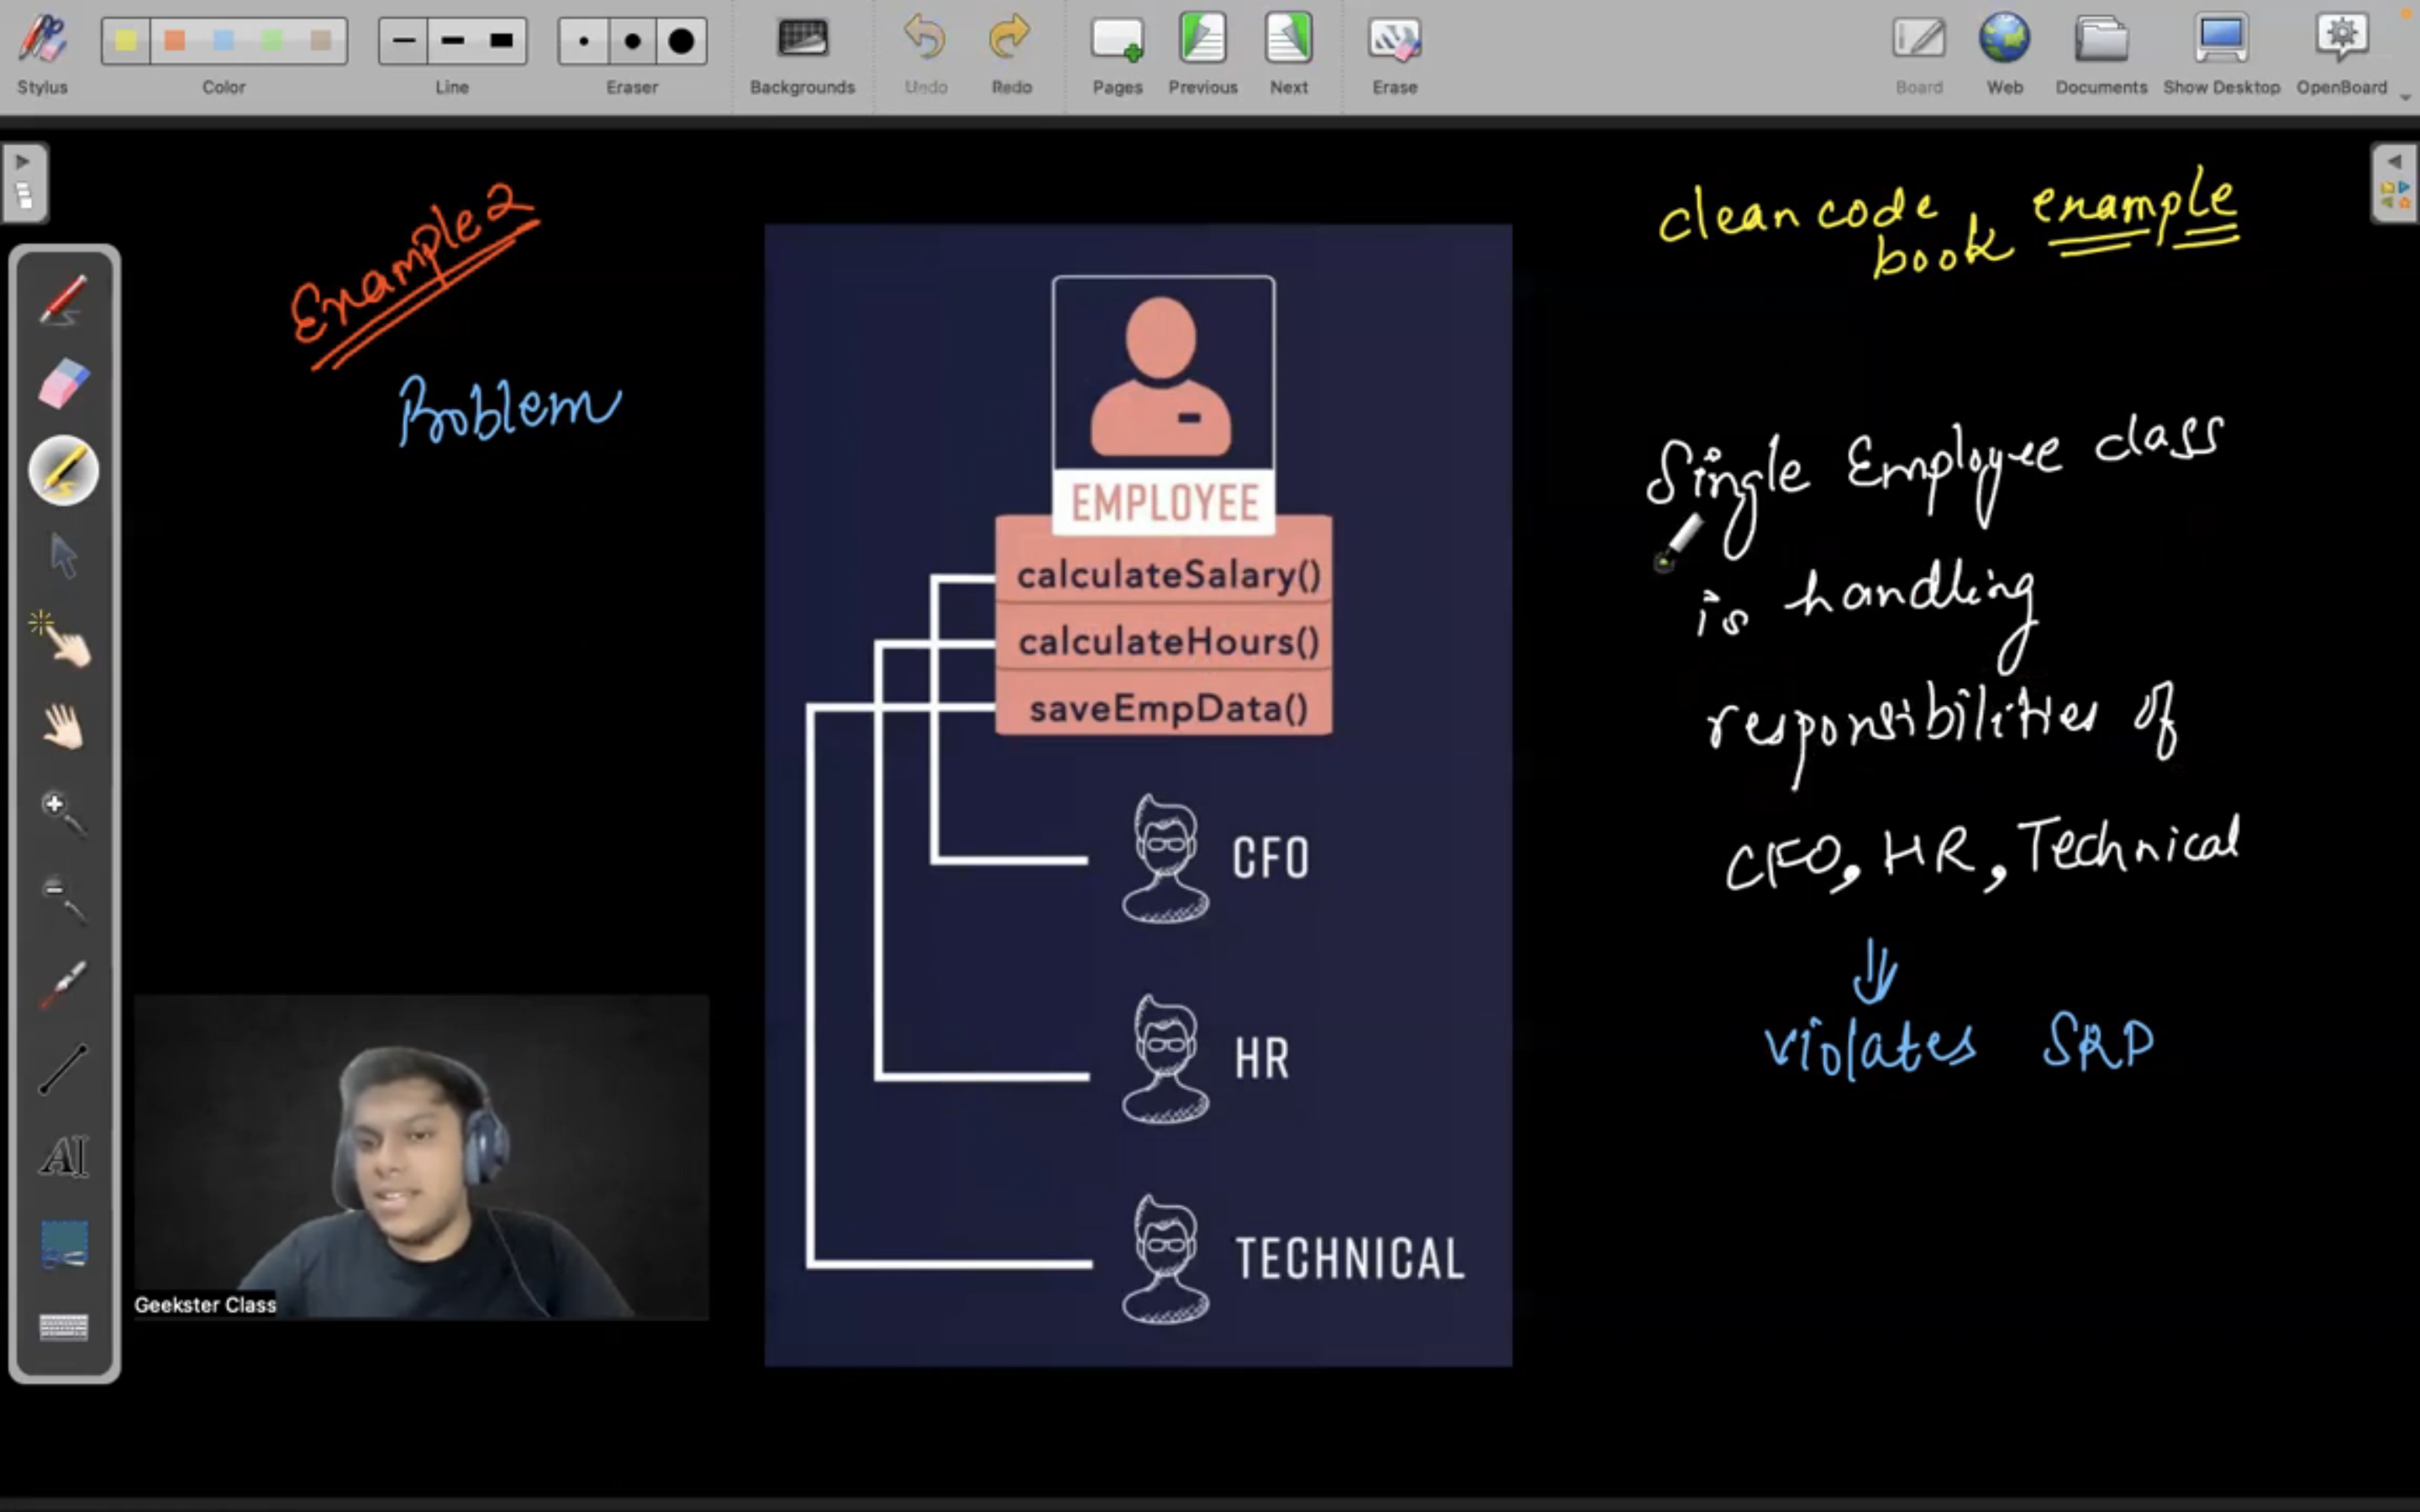 Stylus Color Line Eraser Backgrounds Undo Redo Pages Previous Next Erase Board Web Documents Show Desktop OpenBoard
Example 2
Problem
clean code
book example
EMPLOYEE
calculateSalary()
calculateHours()
saveEmpData()
CFO
HR
TECHNICAL
Single Employee class
is handling
responsibilities of
CFO, HR, Technical
violates SRP
AI
Geekster Class